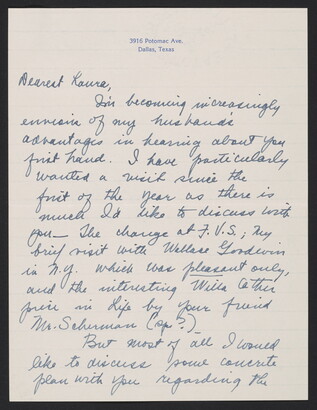 3916 Potomac Ave.
Dallas, Texas
Dearest Laura,
I'm becoming increasingly
envision of my husband's
advantages in hearing about you
first hand. I have particularly
wanted a visit since the
first of the year as there is
much I'd like to discuss with
you — The change at F.V.S.; my
brief visit with Wallace Goodwin
in N.Y. which was pleasant only,
and the interesting Willa Cather
piece in Life by your friend
Mr. Scherman (sp?)
But most of all I would
like to discuss some concrete
plan with you regarding the